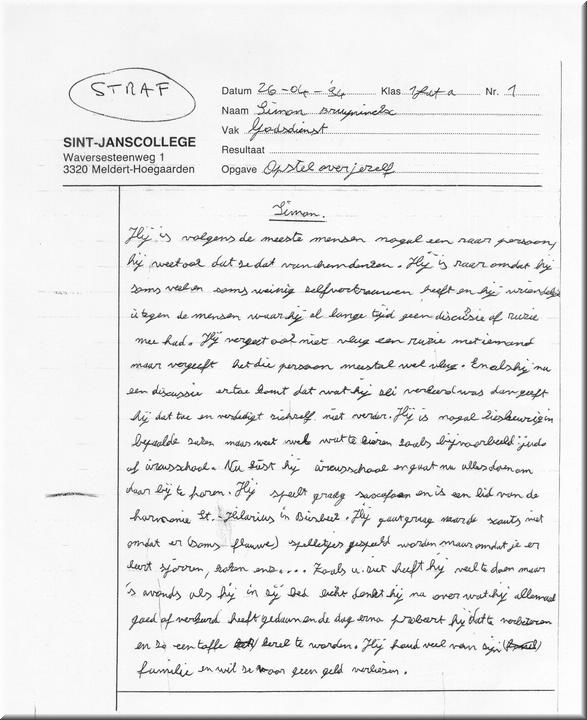 STRAF
Datum 26-04-'94 Klas 1Lat a Nr. 1
Naam Simon Bruyninckx
SINT-JANSCOLLEGE
Vak Godsdienst
Waversesteenweg 1
Resultaat
3320 Meldert-Hoegaarden
Opgave Opstel over jezelf
Simon.
Hij is volgens de meeste mensen nogal een raar persoon,
hij weet ook dat ze dat van hem denken. Hij is raar omdat hij
soms veel en soms weinig zelfvertrouwen heeft en hij vriendelijk
is tegen de mensen waar hij al lange tijd geen discussie of ruzie
mee had. Hij vergeet ook niet vlug een ruzie met iemand
maar vergeeft het die persoon meestal wel vlug. En als hij nu
een discussie ertoe komt dat wat hij zei verkeerd was dan geeft
hij dat toe en verdedigt zichzelf niet verder. Hij is nogal kieskeurig in
bepaalde zaken maar weet wel wat te kiezen zoals bijvoorbeeld judo
of circusschool. Nu kiest hij circusschool en gaat nu alles doen om
daar bij te horen. Hij speelt graag saxofoon en is een lid van de
harmonie St.-Hilarius in Bierbeek. Hij gaat graag naar de scouts niet
omdat er (soms flauwe) spelletjes gespeeld worden maar omdat je er
leert sjorren, koken enz.... Zoals u ziet heeft hij veel te doen maar
's avonds als hij in zij bed licht denkt hij na over wat hij allemaal
goed of verkeerd heeft gedaan en de dag erna probeert hij dat te verbeteren
en zo een toffe kerel te worden. Hij houd veel van zijn
familie en wil ze voor geen geld verliezen.